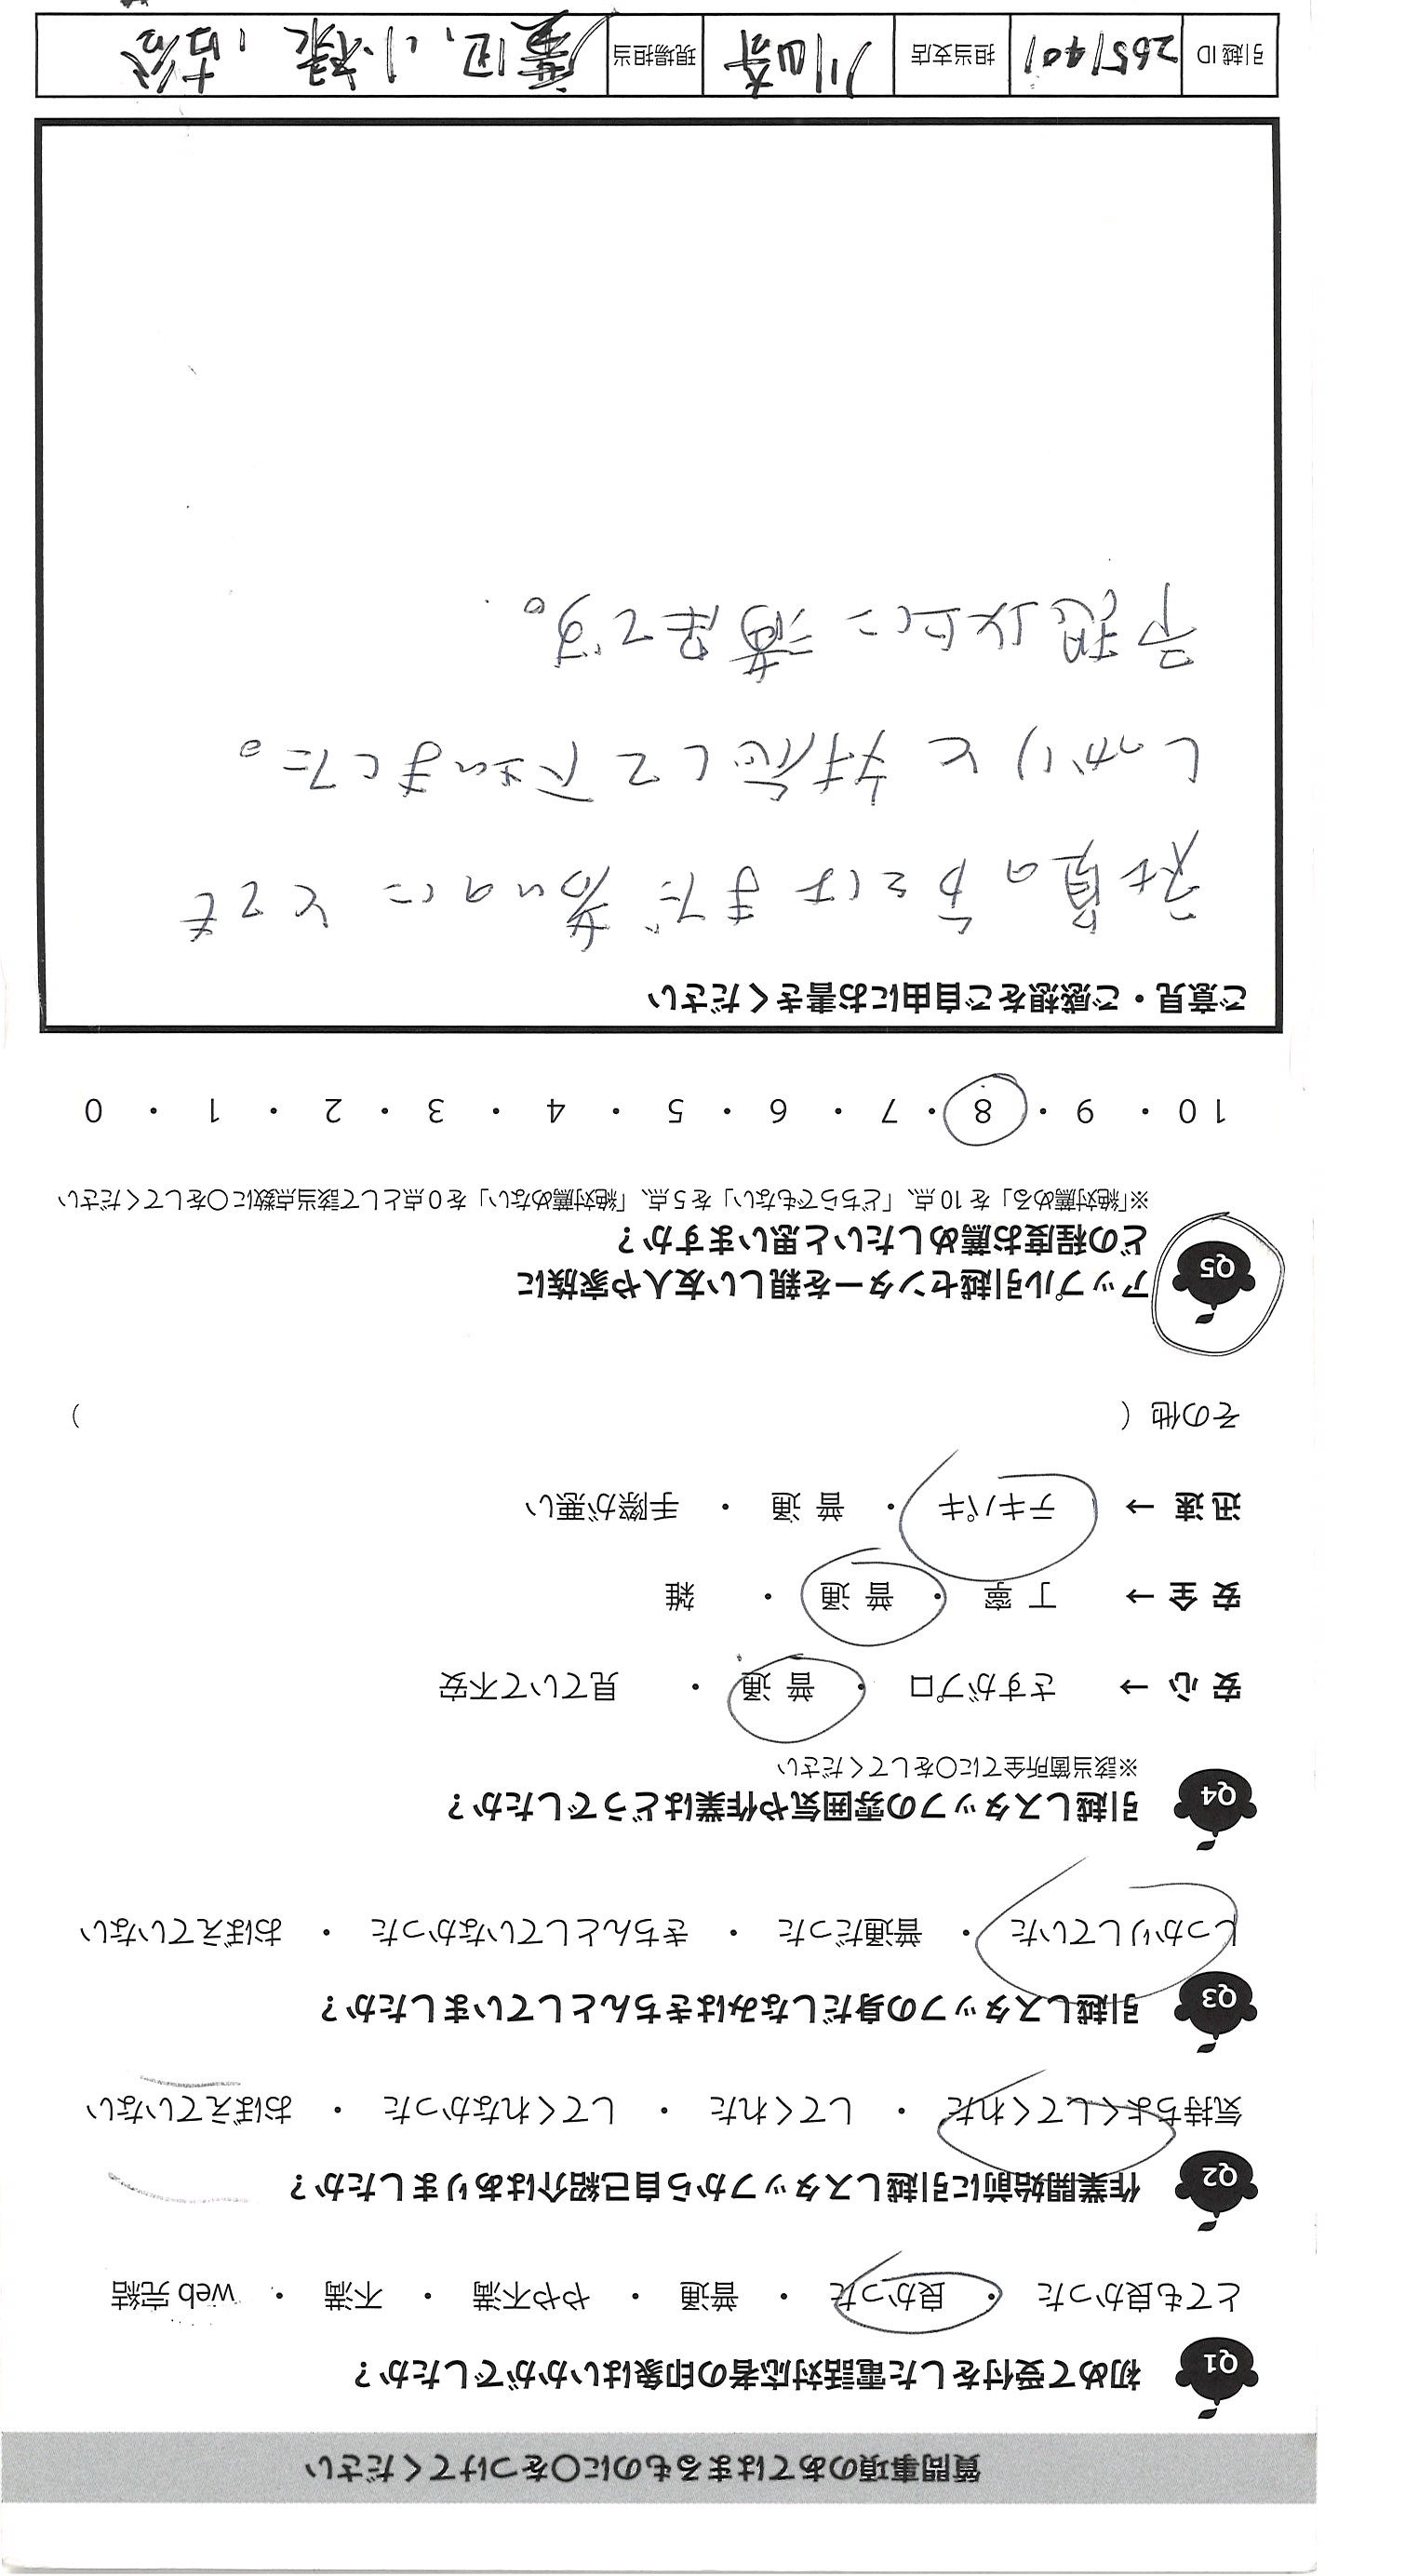 質問事項のあてはまるものに○をつけてください
Q1 初めて受付をした電話対応者の印象はいかがでしたか？
とても良かった ・ 良かった ・ 普通 ・ やや不満 ・ 不満 ・ web 完結
Q2 作業開始前に引越しスタッフから自己紹介はありましたか？
気持ちよくしてくれた ・ してくれた ・ してくれなかった ・ おぼえていない
Q3 引越しスタッフの身だしなみはきちんとしていましたか？
しっかりしていた ・ 普通だった ・ きちんとしていなかった ・ おぼえていない
Q4 引越しスタッフの雰囲気や作業はどうでしたか？
※該当箇所全てに○をしてください
安 心 → さすがプロ ・ 普 通 ・ 見ていて不安
安 全 → 丁 寧 ・ 普 通 ・ 雑
迅 速 → テキパキ ・ 普 通 ・ 手際が悪い
その他（ ）
Q5 アップル引越センターを親しい友人や家族に
どの程度お薦めしたいと思いますか？
※「絶対薦める」を 10 点、「どちらでもない」を 5 点、「絶対薦めない」を 0 点として該当点数に○をしてください
10 ・ 9 ・ 8 ・ 7 ・ 6 ・ 5 ・ 4 ・ 3 ・ 2 ・ 1 ・ 0
ご意見・ご感想をご自由にお書きください
社員の方々はまだ若いのに とても
しっかりと対応して下さいました。
予想以上に満足です。
引越 ID 2651401 担当支店 川崎 現場担当 渡辺、小椋、